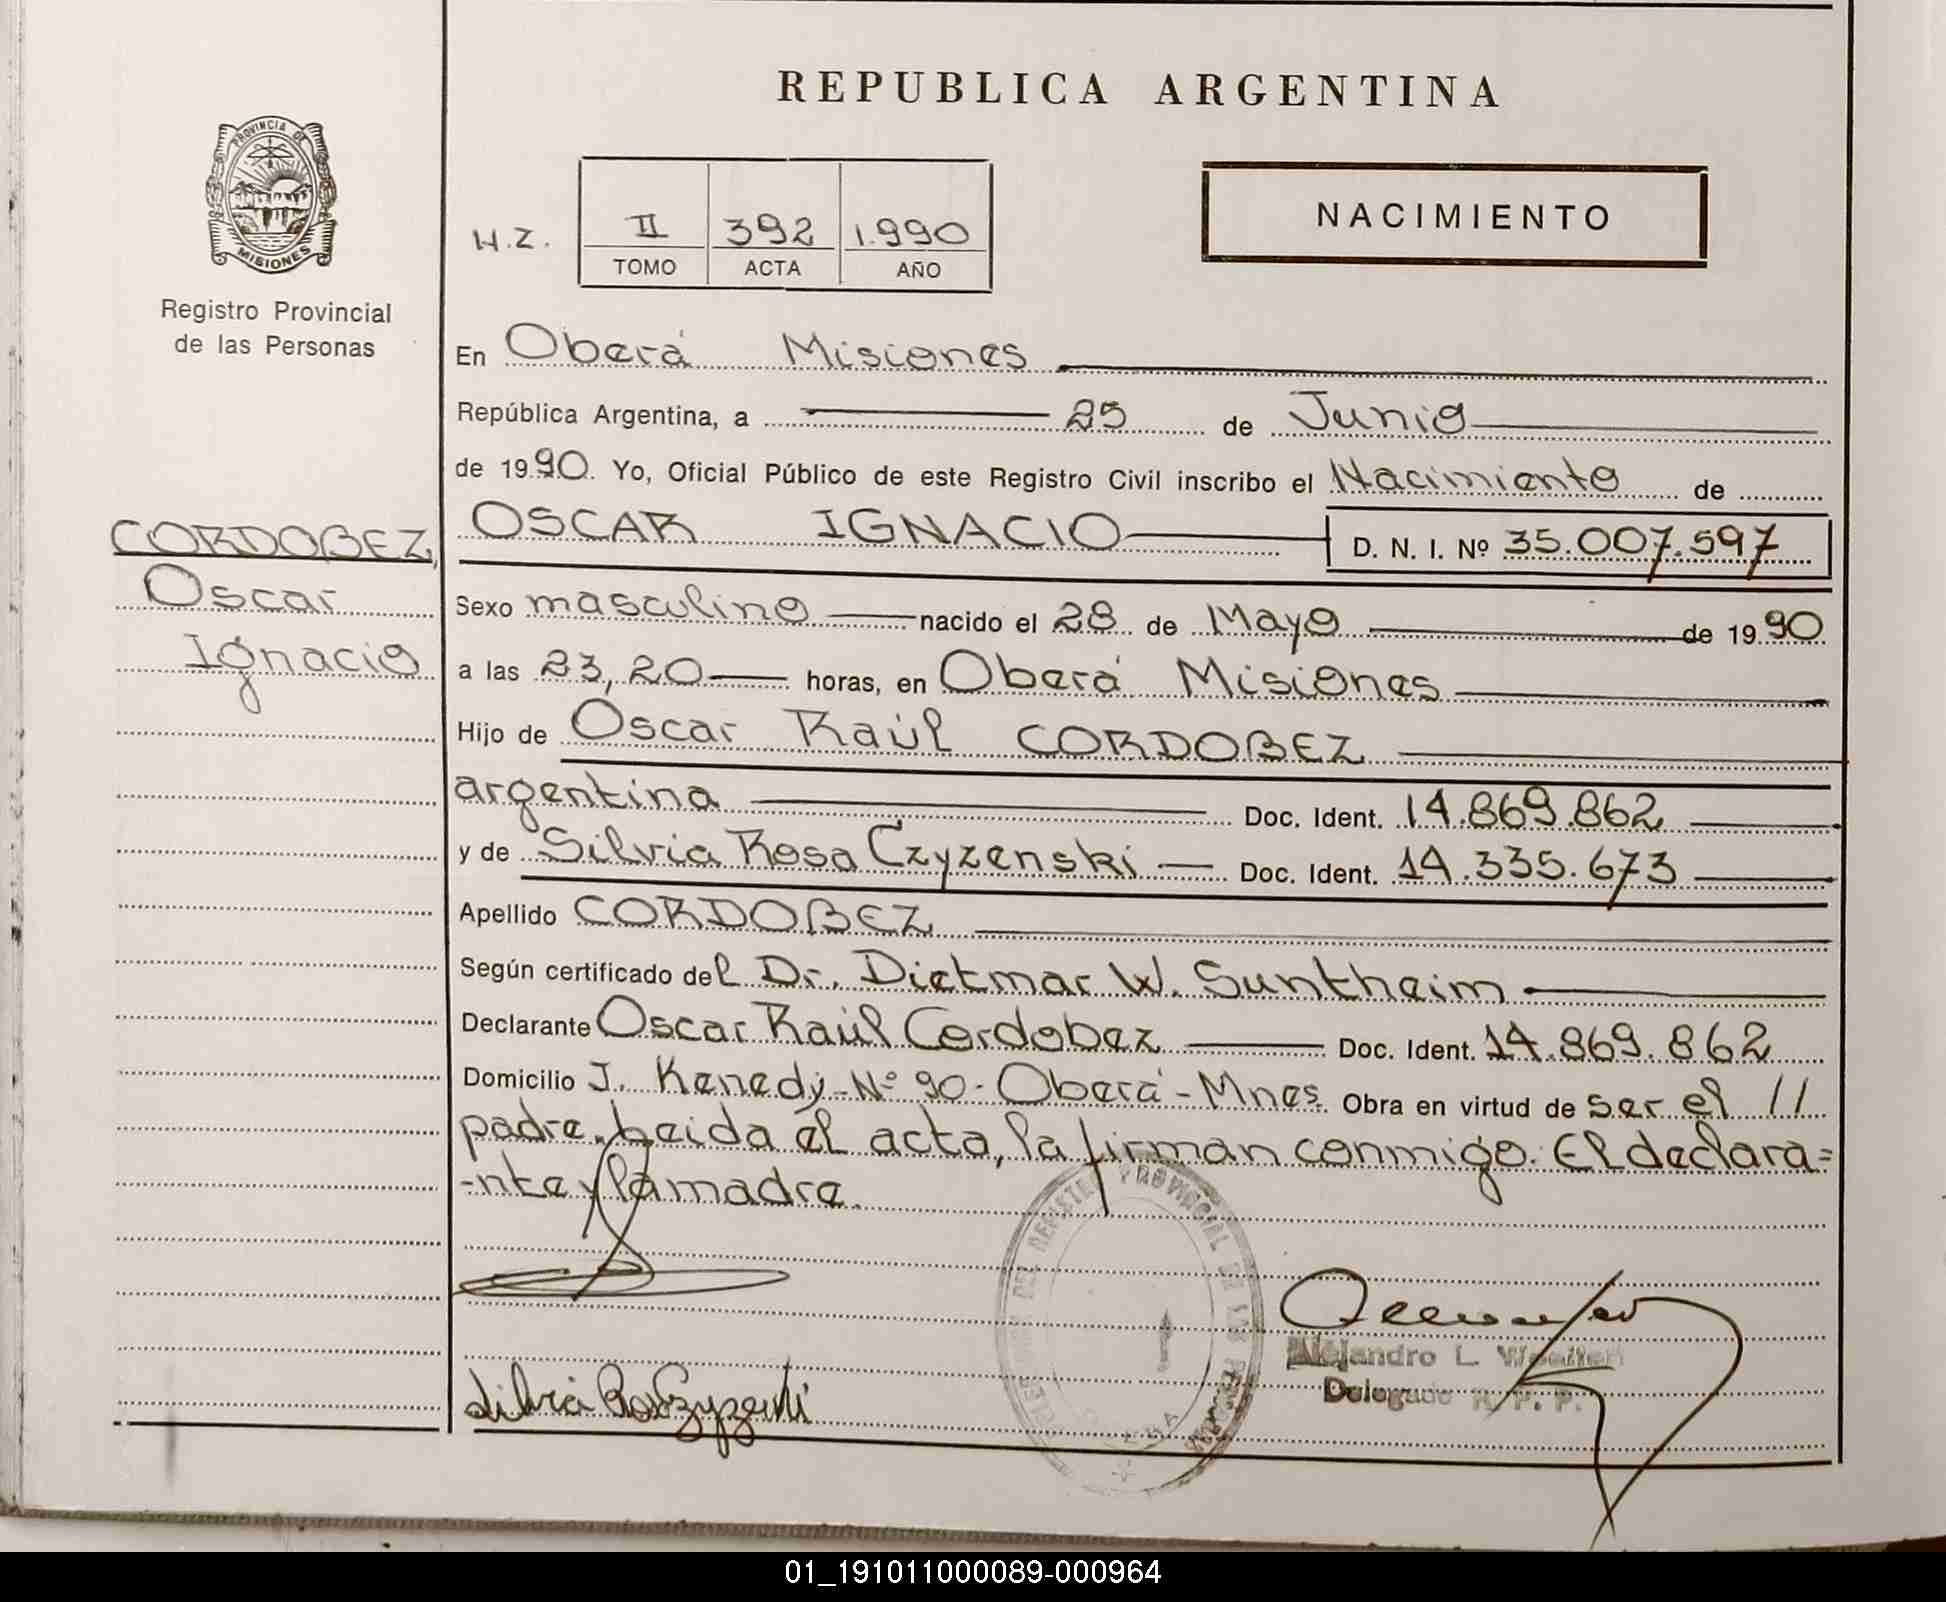 REPUBLICA ARGENTINA
PROVINCIA DE
MISIONES
Registro Provincial
de las Personas
H.Z.
II 392 1.990
TOMO ACTA AÑO
NACIMIENTO
En Oberá Misiones
República Argentina, a 25 de Junio
de 1990. Yo, Oficial Público de este Registro Civil inscribo el Nacimiento de
CORDOBEZ,
Oscar
Ignacio
OSCAR IGNACIO D. N. I. Nº 35.007.597
Sexo masculino nacido el 28 de Mayo de 1990
a las 23,20 horas, en Oberá Misiones
Hijo de Oscar Raúl CORDOBEZ
argentina Doc. Ident. 14.869.862
y de Silvia Rosa Czyzenski Doc. Ident. 14.335.673
Apellido CORDOBEZ
Según certificado del Dr. Dietmar W. Suntheim
Declarante Oscar Raúl Cordobez Doc. Ident. 14.869.862
Domicilio J. Kenedy-Nº 90-Oberá-Mnes. Obra en virtud de ser el //
padre. Leida el acta, la firman conmigo. El declara=
-nte y la madre.
REGISTRO PROVINCIAL DE LAS PERSONAS
Alejandro L.
Delegado R. P. P.
01_191011000089-000964